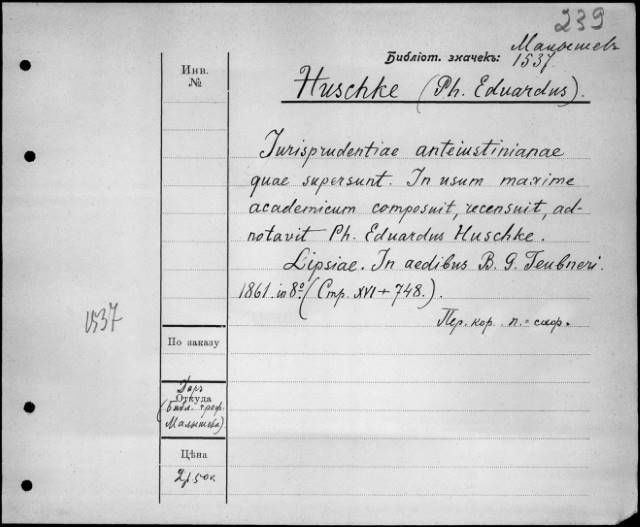 239
Малышевъ
Библіот. значекъ: 1537.
Инв.
№
Huschke (Ph. Eduardus).
Iurisprudentiae anteiustinianae
quae supersunt. In usum maxime
academicum composuit, recensuit, ad-
notavit Ph. Eduardus Huschke.
Lipsiae. In aedibus B. G. Teubneri.
1861. in 8º. (Стр. XVI + 748.).
Пер. кор. п.=
1537
По заказу
Даръ
Откуда
(Библ. проф.
Малышева)
Цѣна
2р. 50к.